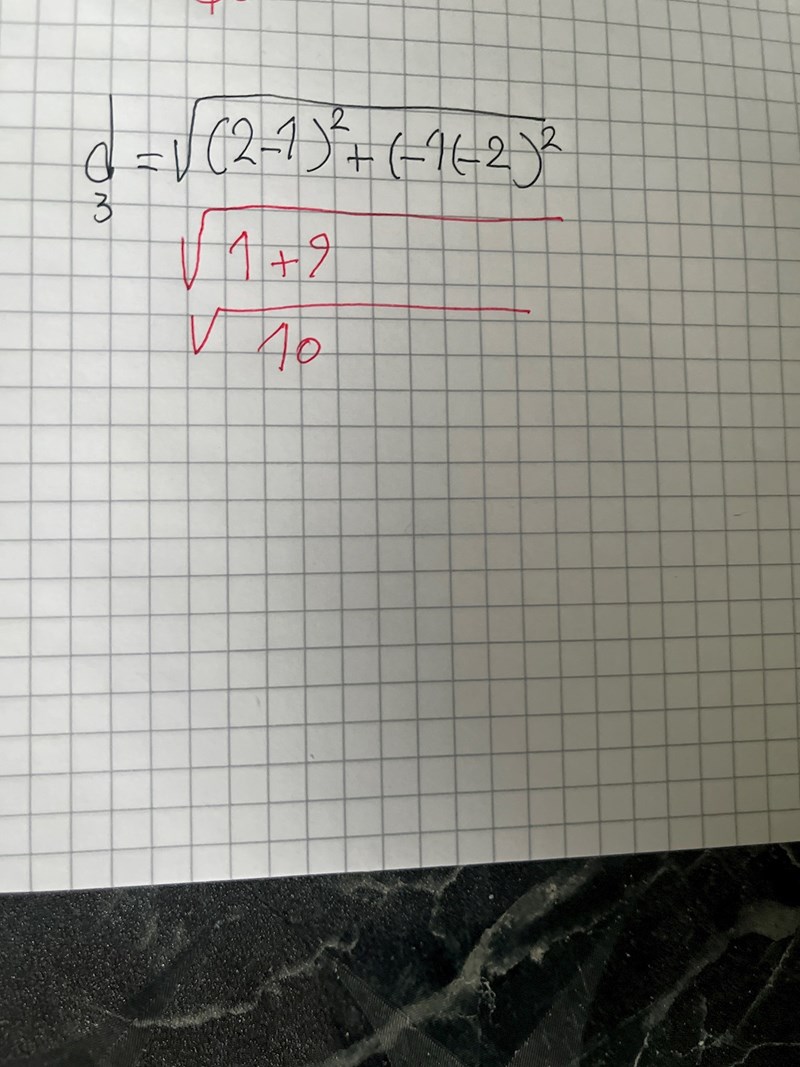 d₃ = √(2-1)² + (-1(-2)²
√1+9
√10